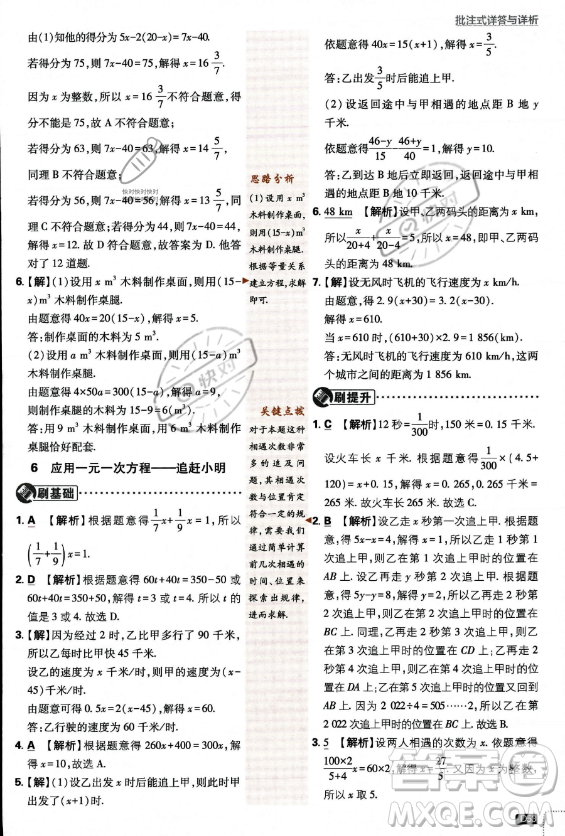 批注式详答与详析
由(1)知他的得分为 5x-2(20-x)=7x-40.
若得分为 75,则 7x-40=75,解得 x=16 3/7.
因为 x 为整数,所以 x=16 3/7 不符合题意,
若得分为 75,故 A 不符合题意;
若得分为 63,则 7x-40=63,解得 x=14 5/7,
同理 B 不符合题意;
若得分为 56,则 7x-40=56,解得 x=13 5/7,同
理 C 不符合题意;
若得分为 44,则 7x-40=44,解得 x=12,
所以 D 符合题意,故答案为 D. 他答
对了 12 道题.
6.【解】(1)设用 x m³ 木料制作桌面,则用(15-
x)m³ 木料制作桌腿.
由题意得 40x=20(15-x),解得 x=5.
答:制作桌面的木料为 5 m³.
(2)设用 a m³ 木料制作桌面,则用(15-a)m³
木料制作桌腿.
由题意得 4×50a=300(15-a),解得 a=9,
则制作桌腿的木料为 15-9=6(m³).
答:用 9 m³ 木料制作桌面,用 6 m³ 木料制作
桌腿恰好配套.
6 应用一元一次方程——追赶小明
刷基础
1. A 【解析】根据题意得 1/7 x+1/9 x=1,所以
(1/7+1/9)x=1.
2. D 【解析】根据题意得 60t+40t=350-50 或
60t+40t=350+50,解得 t=3 或 t=4. 所以 t 的
值是 3 或 4. 故选 D.
3.【解】因为经过 2 时,乙比甲多行了 90 千米,
所以乙每时比甲快 45 千米.
设乙的速度为 x 千米/时,则甲的速度为(x-
45)千米/时.
由题意可得 0.5x=2(x-45),解得 x=60.
答:乙行驶的速度为 60 千米/时.
4.【解】根据题意得 260x+400=300x,解
得 x=10,故答案为 10.
5.【解】(1)设乙出发 x 时后能追上甲.
思路分析
(1)设用 x m³
木料制作桌面,
则用(15-x)m³
木料制作桌腿.
根据等量关系
建立方程,求解
即可.
关键点拨
对于本题这种
相遇次数非常
多的追及问
题,其相遇情
况一般都具有
符合一定的规
律,需要我们
通过简单计算
前几次相遇的
时间、位置来
探索出规律,
进而求解.
依题意得 40x=15(x+1),解得 x=3/5.
答:乙出发 3/5 时后能追上甲.
(2)设返回途中与甲相遇的地点距 B 地 y
千米.
依题意得 (46-y)/15=(46+y)/40-1,解得 y=10.
答:乙到达 B 地后立即返回,返回途中与甲
相遇的地点距 B 地 10 千米.
6. 48 km 【解析】设甲、乙两码头的距离为 x km,
所以 x/(20+4)+x/(20-4)=5,所以 x=48,即甲、乙两码
头的距离为 48 km.
7.【解】设无风时飞机的飞行速度为 x km/h,
由题意得 2.9(x+30)=3.1(x-30),
解得 x=610.
当 x=610 时,(610+30)×2.9=1 856(km).
答:无风时飞机的飞行速度为 610 km/h,这两
个城市之间的距离为 1 856 km.
刷提升
1. C 【解析】12 秒=1/300 时,150 米=0.15 千米.
设火车长 x 千米. 根据题意得 1/300×(4.5+
120)=x+0.15,解得 x=0.265,0.265 千米=
265 米. 故火车长 265 米. 故选 C.
2. B 【解析】设乙走 x 秒第一次追上甲. 根据题
意得 5x-x=4,解得 x=1,所以乙走 1 秒第 1
次追上甲,则乙在第 1 次追上甲时的位置在
AB 上. 设乙再走 y 秒第 2 次追上甲. 根据题
意得 5y-y=8,解得 y=2,所以乙再走 2 秒第
2 次追上甲,则乙在第 2 次追上甲时的位置在
BC 上. 同理,乙再走 2 秒第 3 次追上甲时的
位置在 CD 上;乙再走 2 秒第 4 次追上甲时的
位置在 DA 上;乙在第 5 次追上甲时的位置又回到
AB 上. 因为 2 022÷4=505……2,所以乙在第
2 022 次追上甲时的位置与第 2 次追上甲时
的位置相同,在 BC 上. 所以乙在第 2 022 次追
上甲时的位置在 BC 上. 故选 B.
3. 5 【解析】设两人相遇的次数为 x. 依题意得
100×2/(5+4) x=60×2,解得 x=27/5. 又因为 x 为整数,
所以 x 取 5.
快对
MXQE.COM